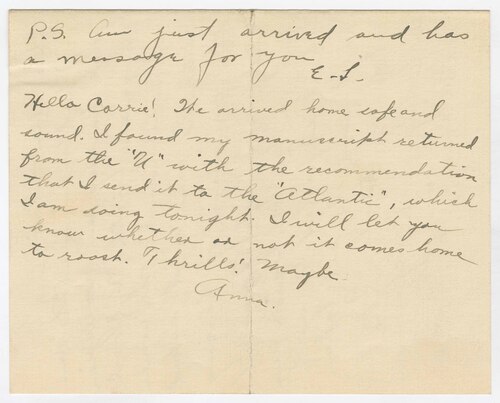 P.S. Ann just arrived and has
a message for you
E. S.
Hello Carrie! The arrived home safe and
sound. I found my manuscript returned
from the "U" with the recommendation
that I send it to the "Atlantic", which
I am doing tonight. I will let you
know whether or not it comes home
to roost. Thrills! Maybe
Anna.